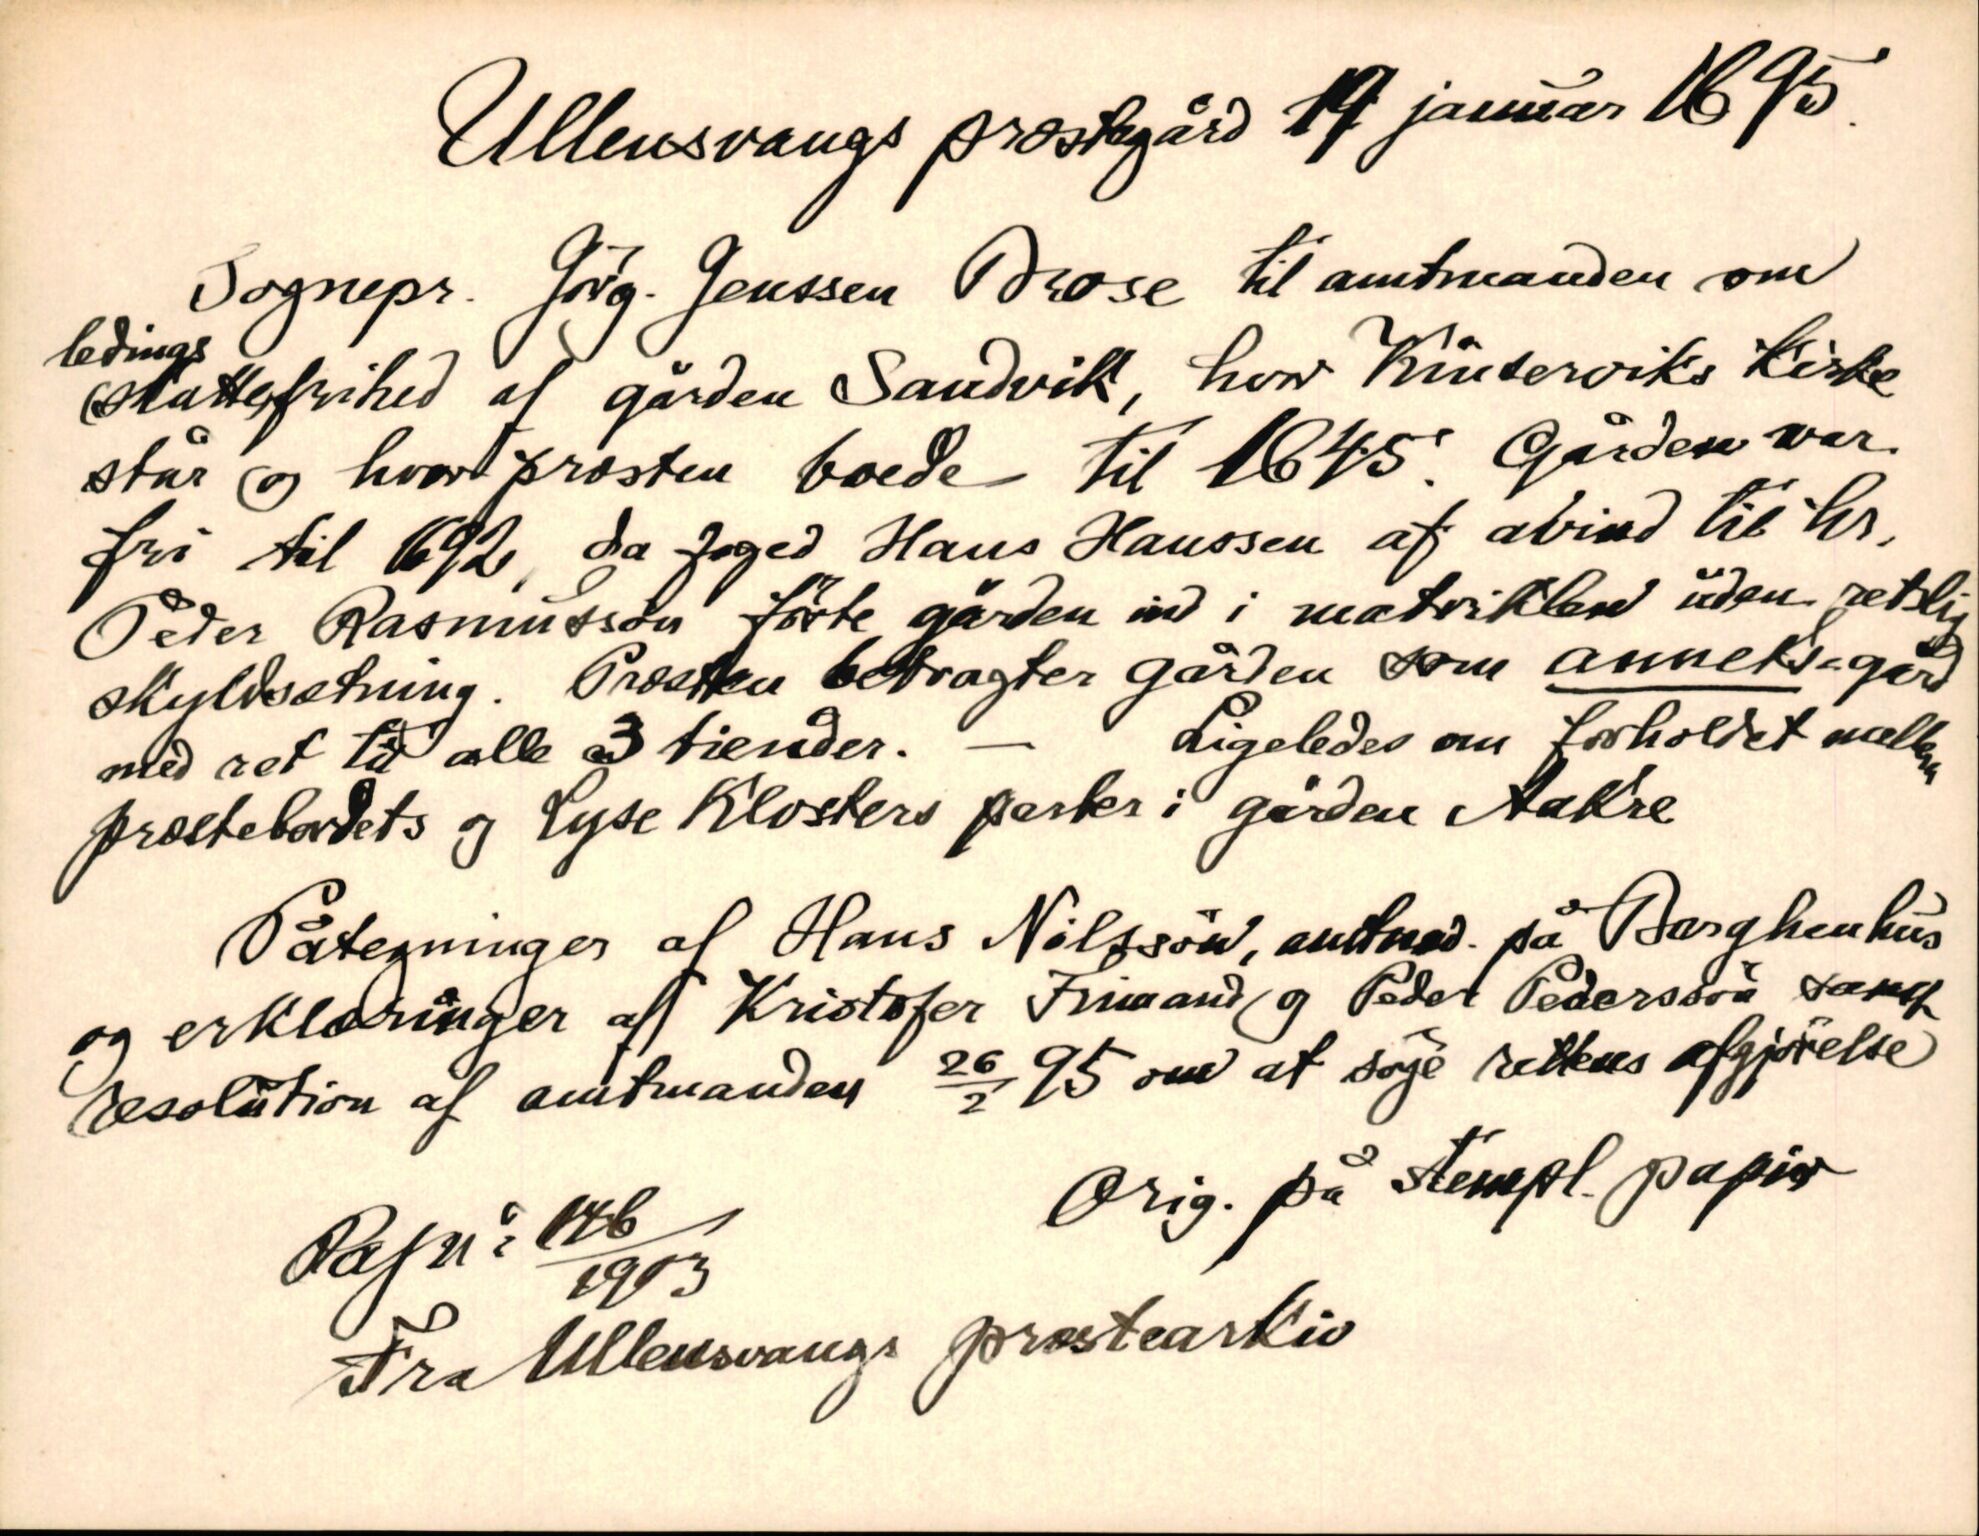 Ullensvangs præstegård 19 januar 1695.
Sognepr. Jörg. Jenssen Brose til amtmanden om
ledings
(skatte)frihed af gården Sandvik, hvor Kinserviks Kirke
står og hvor præsten boede til 1645. Gården var
fri til 1692, da foged Hans Hanssen af avind til hr.
Peder Rasmussön förte gården ind i matriklen uden retslig
skyldsætning. Præsten betragter gården som anneks-gård
med ret til alle 3 tiender. — Ligeledes om forholdet mellem
præstebordets og Lyse Klosters parter i gården Aakre
Påtegninger af Hans Nilssön, amtmd. på Bærghenhus
og erklæringer af Kristofer Frimand og Peder Pederssön samt
resolution af amtmanden 26/2 95 om at söge rettens afgjörelse
Orig. på stempl. papir
Papir: 146/1903
Fra Ullensvangs præstearkiv